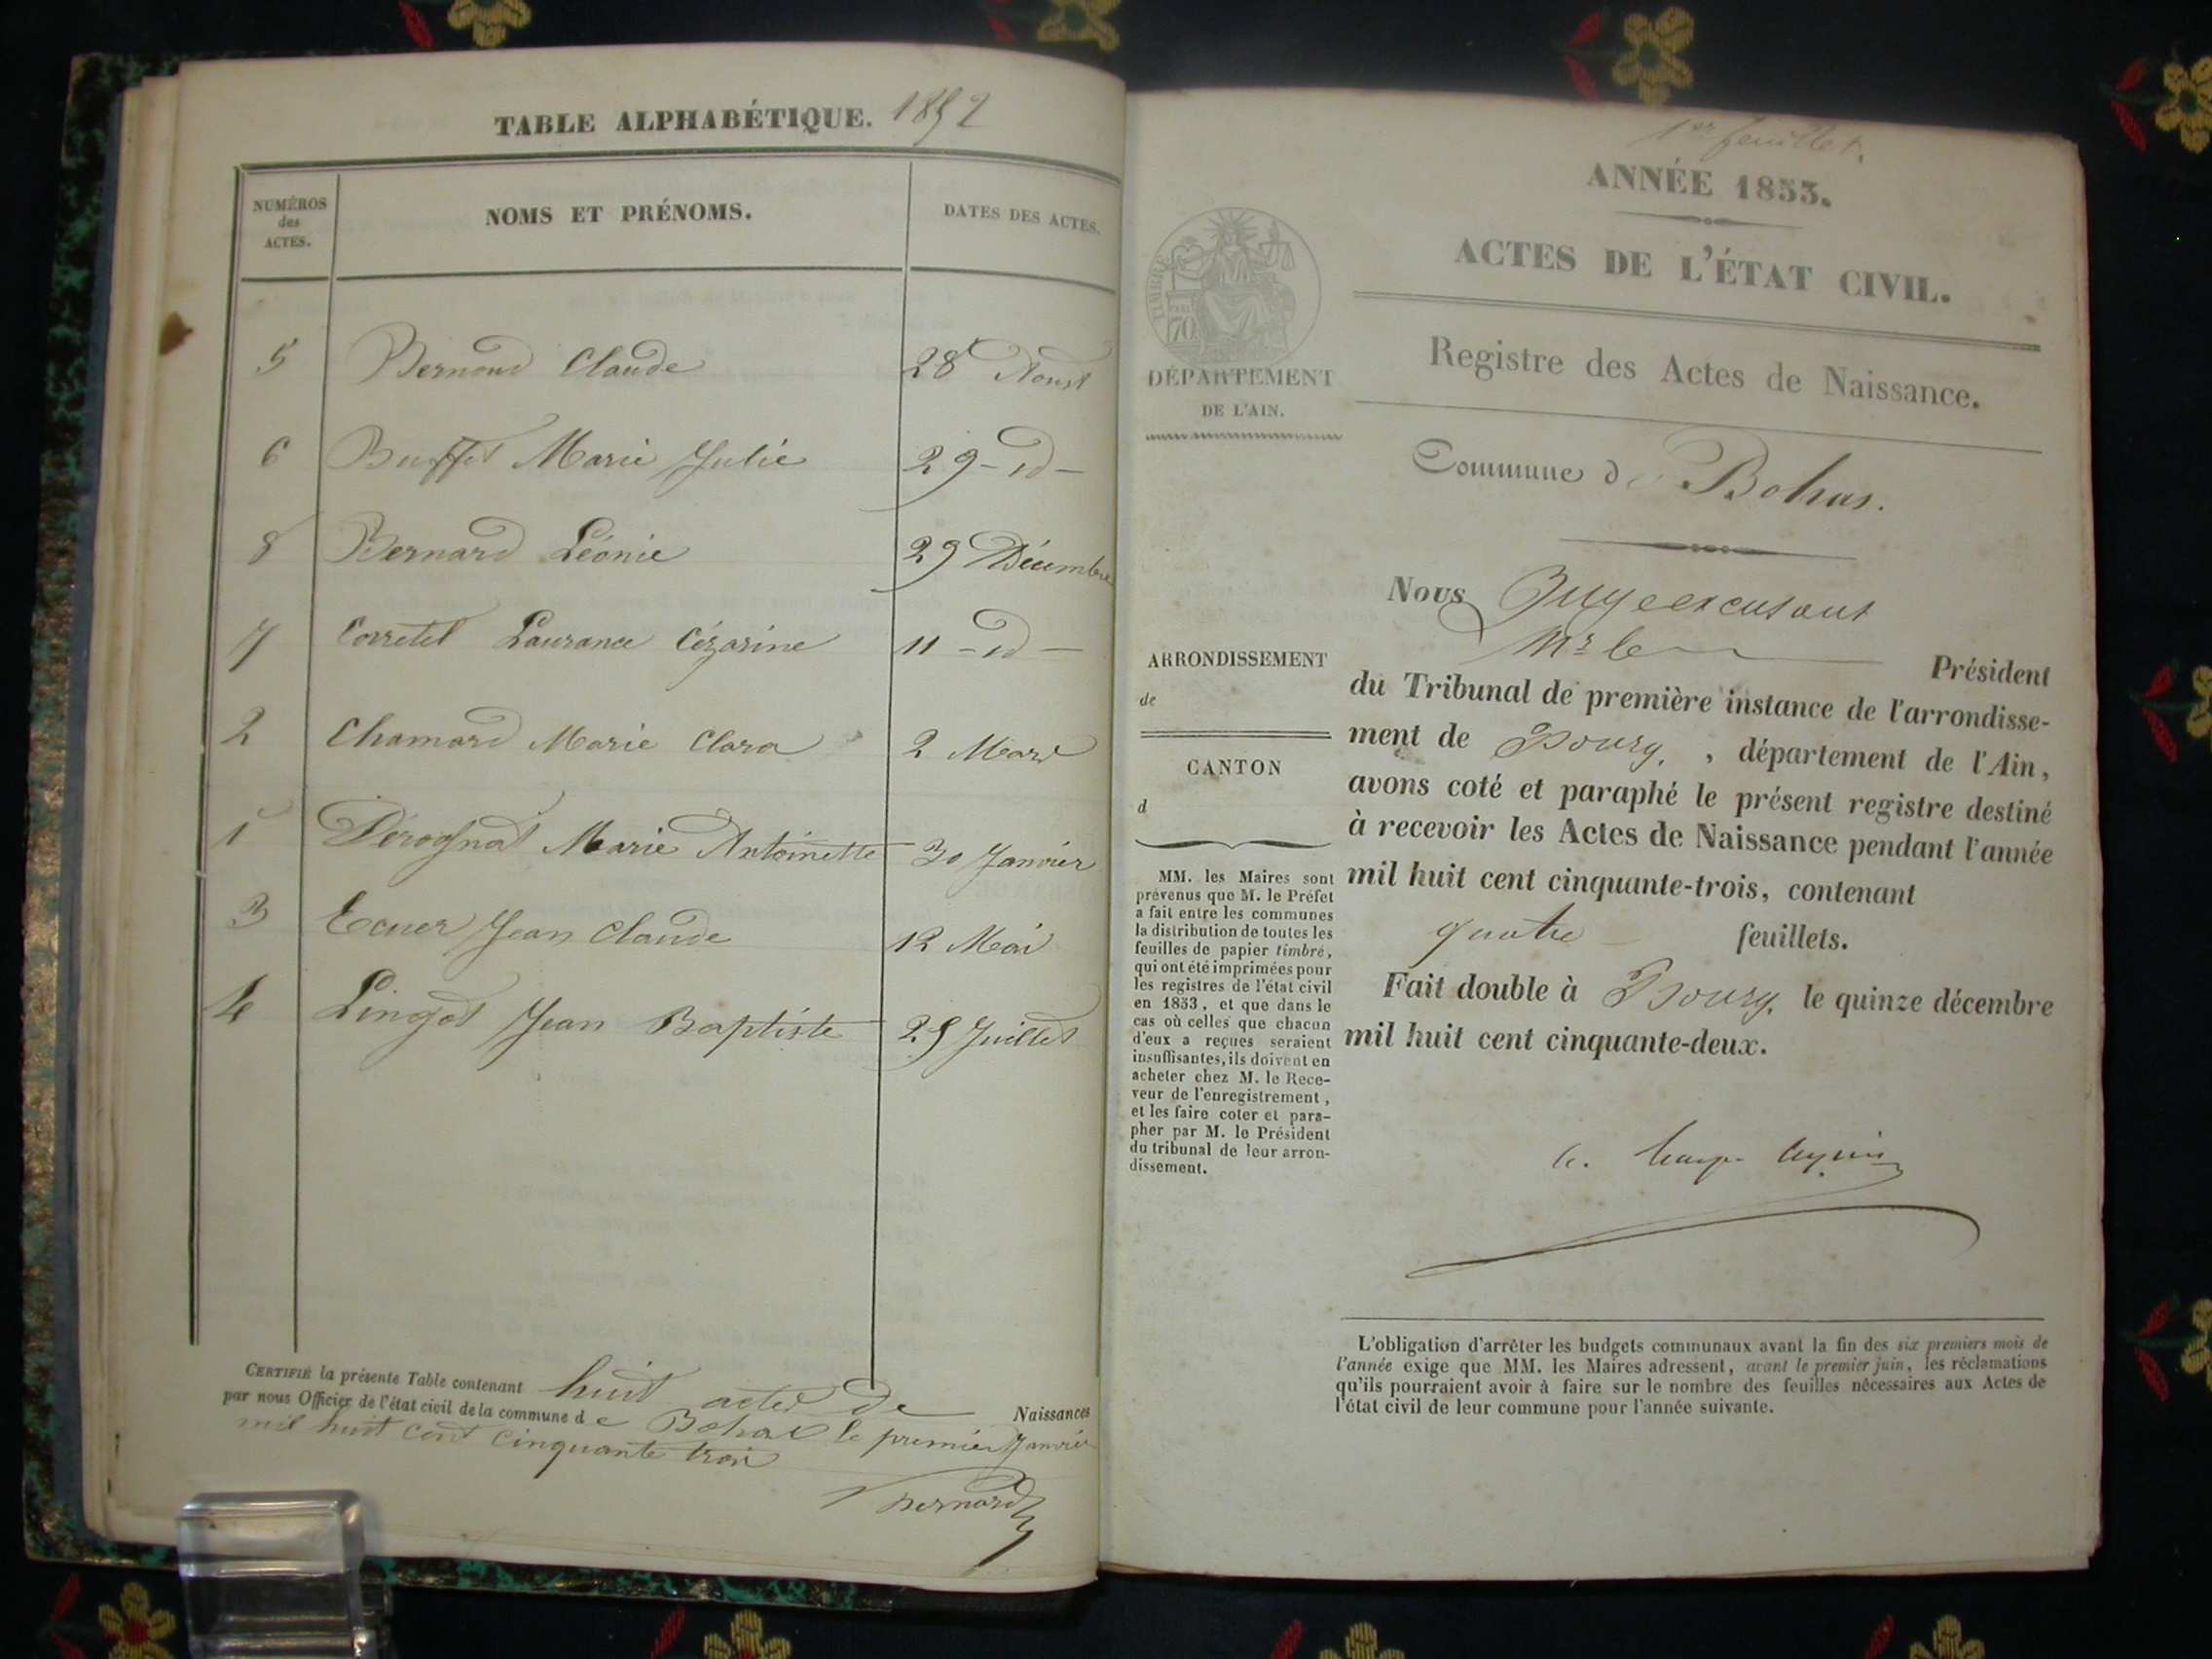 TABLE ALPHABÉTIQUE. 1852
NUMÉROS des ACTES. NOMS ET PRÉNOMS. DATES DES ACTES.
5 Bernoud Claude 28 Aoust
6 Buffet Marie Julie 29 - id -
8 Bernard Léonie 29 Décembre
7 Corretel Laurance Cézarine 11 - id -
2 Chamard Marie Clara 2 Mars
1 Pérognat Marie Antoinette 30 Janvier
3 Ecuer Jean Claude 12 Mai
4 Lingot Jean Baptiste 25 Juillet
CERTIFIÉ la présente Table contenant huit actes de Naissances
par nous Officier de l'état civil de la commune de Bohas le premier Janvier
mil huit cent cinquante trois
Bernard
1er feuillet.
ANNÉE 1853.
ACTES DE L'ÉTAT CIVIL.
Registre des Actes de Naissance.
TIMBRE
70
DÉPARTEMENT
DE L'AIN.
Commune de Bohas.
Nous Juge excusant
Mr le Président
du Tribunal de première instance de l'arrondisse-
ment de Bourg, , département de l'Ain,
avons coté et paraphé le présent registre destiné
à recevoir les Actes de Naissance pendant l'année
mil huit cent cinquante-trois, contenant
quatre feuillets.
Fait double à Bourg, le quinze décembre
mil huit cent cinquante-deux.
ARRONDISSEMENT
de
CANTON
d
MM. les Maires sont
prévenus que M. le Préfet
a fait entre les communes
la distribution de toutes les
feuilles de papier timbré,
qui ont été imprimées pour
les registres de l'état civil
en 1853, et que dans le
cas où celles que chacun
d'eux a reçues seraient
insuffisantes, ils doivent en
acheter chez M. le Rece-
veur de l'enregistrement,
et les faire coter et para-
pher par M. le Président
du tribunal de leur arron-
dissement.
L'obligation d'arrêter les budgets communaux avant la fin des six premiers mois de
l'année exige que MM. les Maires adressent, avant le premier juin, les réclamations
qu'ils pourraient avoir à faire sur le nombre des feuilles nécessaires aux Actes de
l'état civil de leur commune pour l'année suivante.